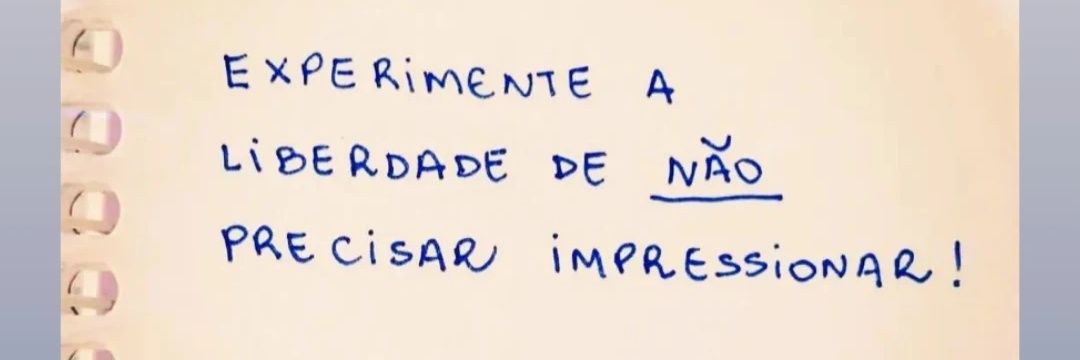 EXPERIMENTE A
LIBERDADE DE NÃO
PRECISAR IMPRESSIONAR!